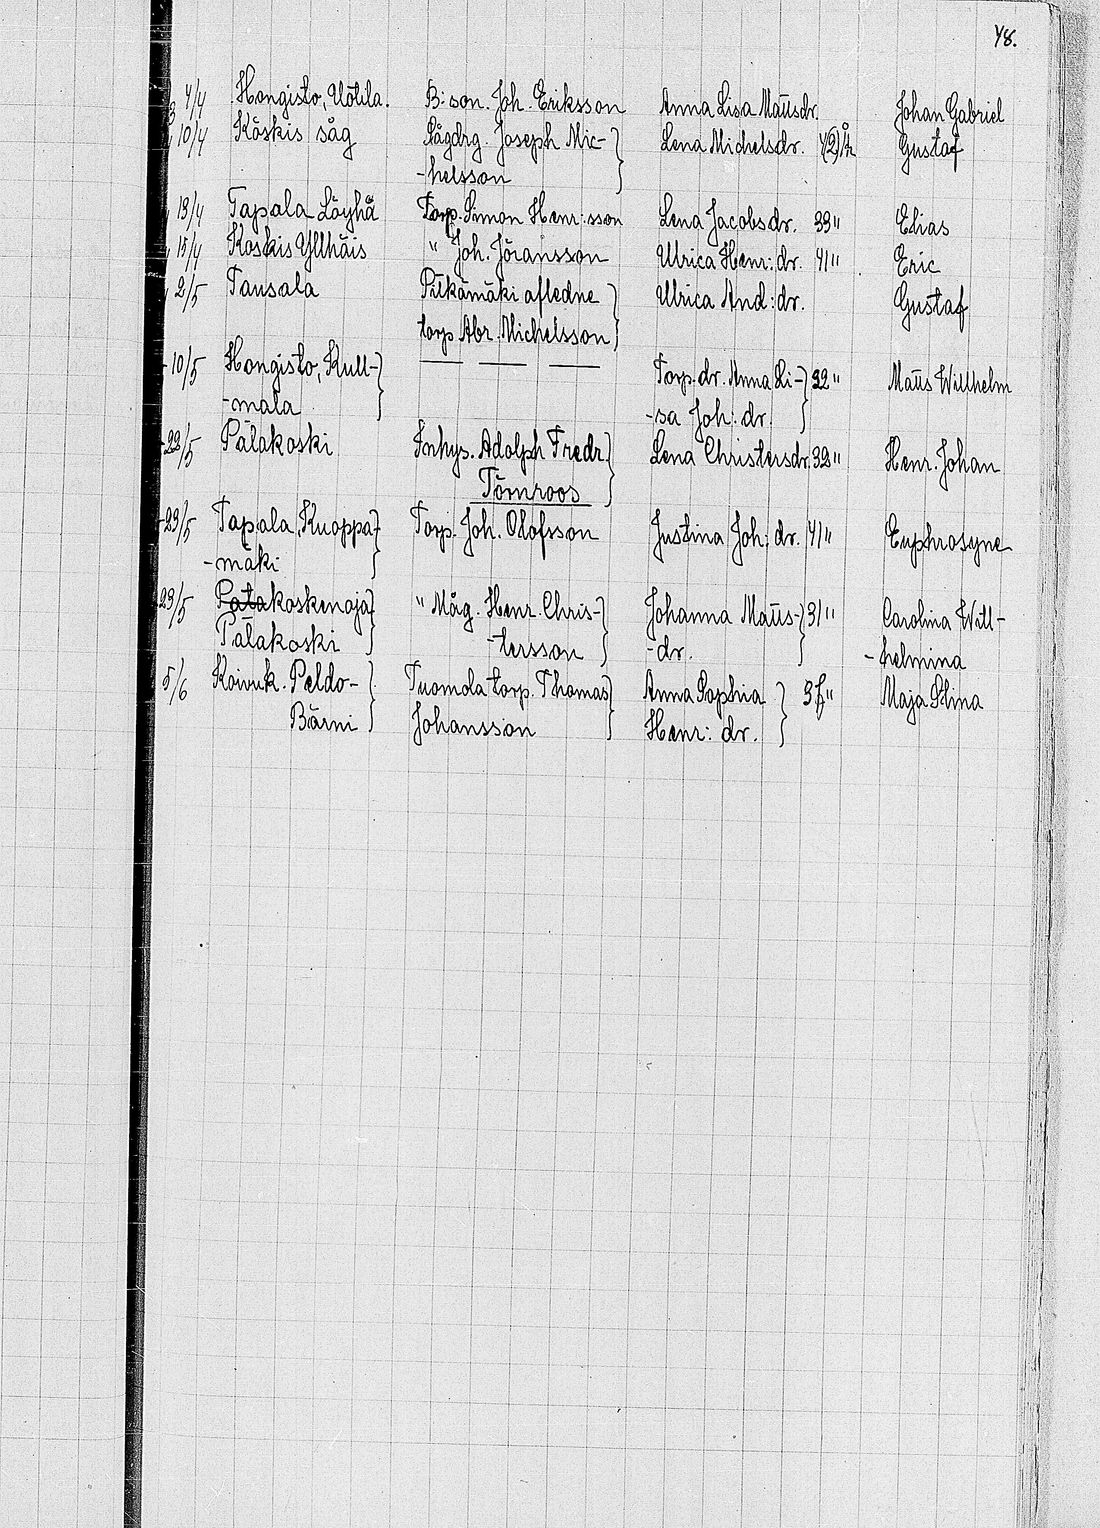 48.
4/4 Hongisto, Uotila. B: son. Joh. Eriksson Anna Lisa Mattsdr. Johan Gabriel
10/4 Koskis såg Sågdrg. Joseph Mic- Lena Michelsdr. Gustaf
-helsson
13/4 Tapala Löyhä Torp. Simon Henr: sson Lena Jacobsdr. 33" Elias
15/4 Koskis Yllhäis " Joh. Jöransson Ulrica Henr: dr. 41" Eric
2/5 Tausala Pitkämäki afledne Ulrica And: dr. Gustaf
torp. Abr. Michelsson
10/5 Hongisto, Kull- — — — Torp. dr. Anna Li- 32" Matts Willhelm
-mala -sa Joh: dr.
22/5 Pälakoski Inhys. Adolph Fredr. Lena Christersdr. 32" Henr. Johan
Tömroos
23/5 Tapala, Kuoppa- Torp. Joh. Olofsson Justina Joh: dr. 41" Euphrosyne
-mäki
23/5 Patakoskenoja " Måg. Henr. Chris- Johanna Matts- 31" Carolina Will-
Pälakoski -tersson -dr. -helmina
5/6 Koivuk. Peldo- Tuomola torp. Thomas Anna Sophia Maja Stina
Bärni Johansson Henr: dr.